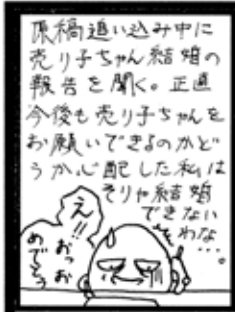 原稿追い込み中に
売り子ちゃん結婚の
報告を聞く。正直
今後も売り子ちゃんを
お願いできるのかど
うか心配した私は
そりゃ結婚
できない
わな…。
え!!
おっお
めでとう